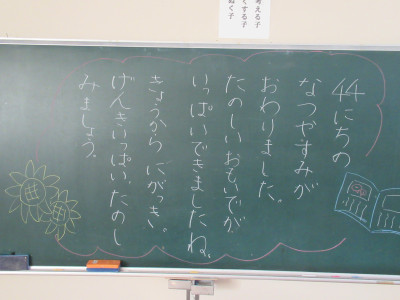 44にちの
なつやすみが
おわりました。
たのしいおもいでが
いっぱいできましたね。
きょうから にがっき。
げんきいっぱい、たのし
みましょう。
考える子
くする子
ぬく子